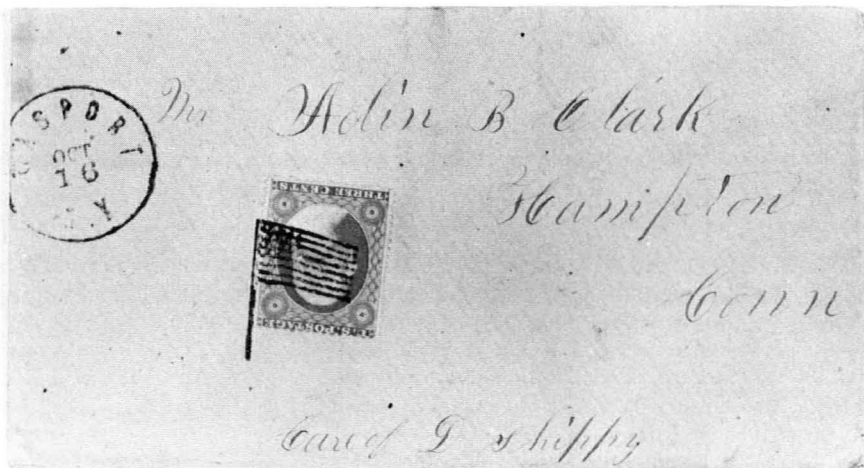 GASPORT
OCT
16
N.Y
Mr Adin B Clark
Hampton
Conn
THREE CENTS
U.S. POSTAGE
Care of D Shippy